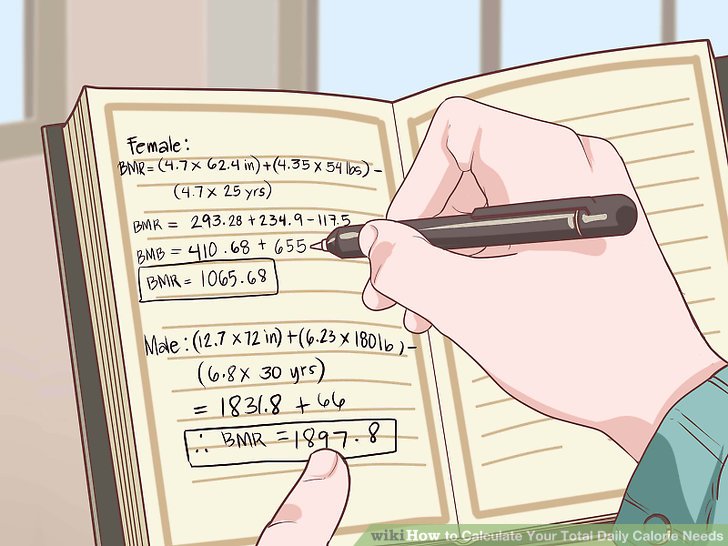 Female:
BMR=(4.7 x 62.4 in)+(4.35 x 54 lbs)-
(4.7 x 25 yrs)
BMR = 293.28 + 234.9 - 117.5
BMB = 410.68 + 655
BMR = 1065.68
Male: (12.7 x 72 in)+(6.23 x 180 lb)-
(6.8 x 30 yrs)
= 1831.8 + 66
∴ BMR = 1897.8
wikiHow to Calculate Your Total Daily Calorie Needs